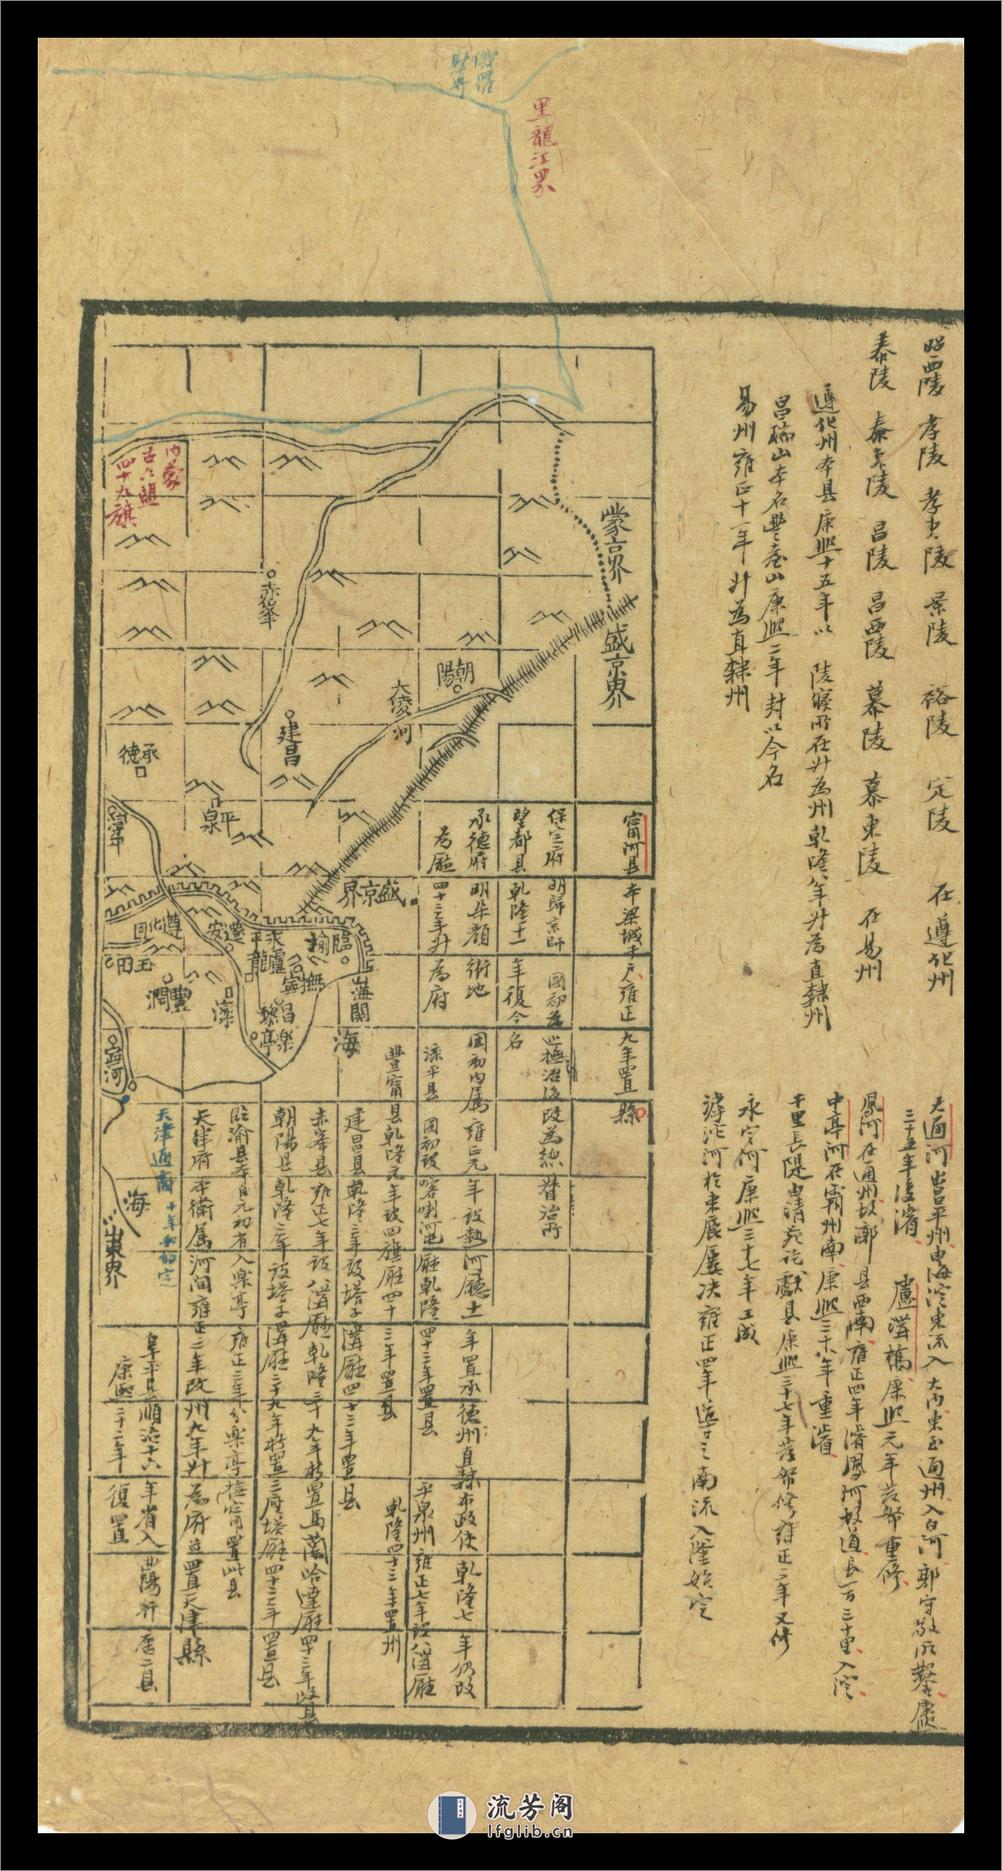 俄羅
黑龍江界
昭西陵 孝陵 孝東陵 景陵 裕陵 定陵 在遵化州
泰陵 泰東陵 昌陵 昌西陵 慕陵 慕東陵 在易州
遵化州本县康熙十五年以 陵寢所在升為州乾隆八年升為直隸州
昌瑞山本名豐臺山康熙二年封以今名
易州雍正十一年升為直隸州
大通河出昌平州東海淀東流入大內東至通州入白河郭守敬所鑿康熙
三十五年復濬 盧溝橋康熙元年發帑重修
鳳河在通州故漷县西南雍正四年濬鳳河故道長一百三十里入淀
中亭河在霸州南康熙三十八年重濬
千里長隄由清苑訖獻县康熙三十七年發帑修雍正二年又修
永定河康熙三十七年工成
滹沱河於束鹿屢決雍正四年導之南流入隆始定
甯河县本梁城千户雍正九年置縣
保定府 明歸京師 國初為巡撫治後改為總督治所
望都县乾隆十一年復今名
承德府明朵顏衛地 國初內属雍正元年設熱河廳十一年置承德州直隸布政使乾隆七年仍改
為廳四十三年升為府
灤平县 國初設喀喇河屯廳乾隆四十三年置县 平泉州雍正七年設八溝廳
乾隆四十三年置州
豐甯县乾隆元年設四旗廳四十三年置县
建昌县乾隆三年設塔子溝廳四十三年置县
赤峯县雍正七年設八溝廳乾隆三十九年析置烏蘭哈達廳四十三年改县
朝陽县乾隆三年設塔子溝廳三十九年析置三座塔廳四十三年置县
臨渝县本自元初省入樂亭雍正二年分樂亭撫甯置此县
天津府本衛属河间雍正二年改州九年升為府並置天津縣
阜平县順治十六年省入曲陽行唐二县
康熙二十二年復置
蒙古界
盛京界
內蒙
古六盟
四十九旗
赤峯
朝陽
大淩河
建昌
承德
平泉
灤平
盛京界
遵化
遷安
永平
盧龍
臨榆
撫甯
山海關
玉田
豐潤
灤
昌黎
樂亭
甯河
海
天津通商 十年和約定
海
山東界
流芳阁
lfglib.cn